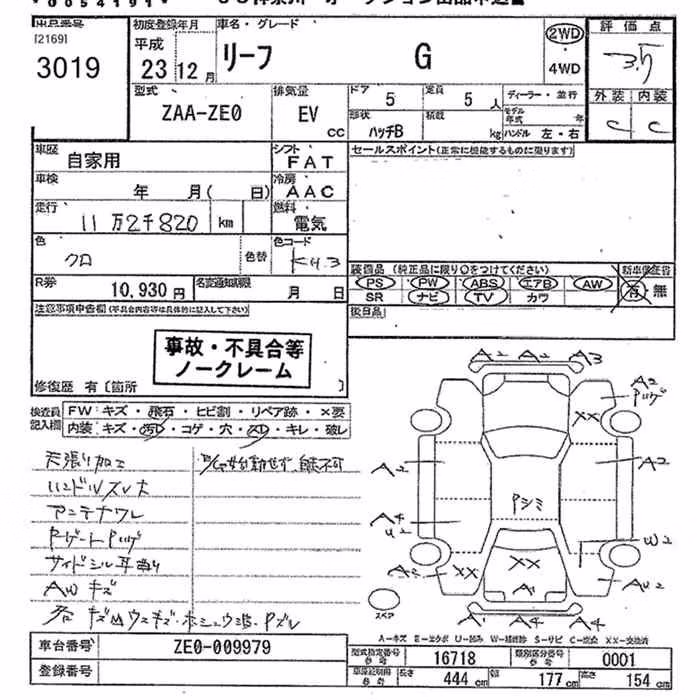 * 0054191 *
出品番号 初度登録年月 車名・グレード 評価点
[2169] 平成 リーフ G 2WD 3.5
3019 23 12 月 4WD
型式 排気量 ドア 5 定員 5 人 ディーラー・並行 外装 内装
ZAA-ZE0 EV CC 形状 ハッチB 積載 kg モデル年式 年 C C
ハンドル 左・右
車歴 自家用 シフト FAT セールスポイント(正常に機能するものに限ります)
車検 年 月( 日) 冷房 AAC
走行 11万2千820 km 燃料 電気
色 クロ 色替 色コード KH3
装備品 (純正品に限り○をつけてください) 新車保証書
R券 10,930 円 名変通知期限 月 日 PS PW ABS エアB AW 有 無
SR ナビ TV カワ
注意事項申告欄(不具合内容等は具体的に記入して下さい) 後日品
事故・不具合等
ノークレーム
修復歴 有〔箇所 〕
検査員記入欄 FW:キズ・飛石・ヒビ割・リペア跡・×要
内装:キズ・汚レ・コゲ・穴・スレ・キレ・破レ
天張り加工
ハンドルスレ大
アンテナワレ
RゲートPハゲ
サイドシル平曲り
AWキズ
A2 A2 A3
A2
Pハゲ
XX
A2 A2
Pシミ
A4
U2 W2
XX XX
A1
スペア
A1 A4 A4
A-キズ E-エクボ U-凹み W-補修跡 S-サビ C-腐食 XX-交換済
車台番号 ZE0-009979 型式指定番号 参考 16718 類別区分番号 参考 0001
登録番号 車庫証明用 参考 長さ 444 cm 幅 177 cm 高さ 154 cm